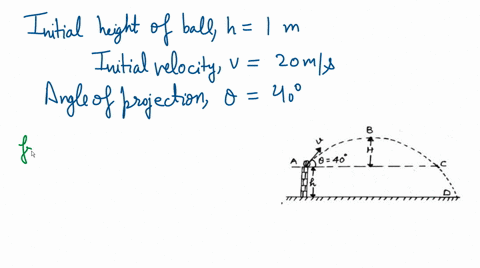 Initial height of ball, h = 1 m
Initial velocity, v = 20 m/s
Angle of projection, θ = 40°
f
B
v
A
θ = 40°
H
C
h
D